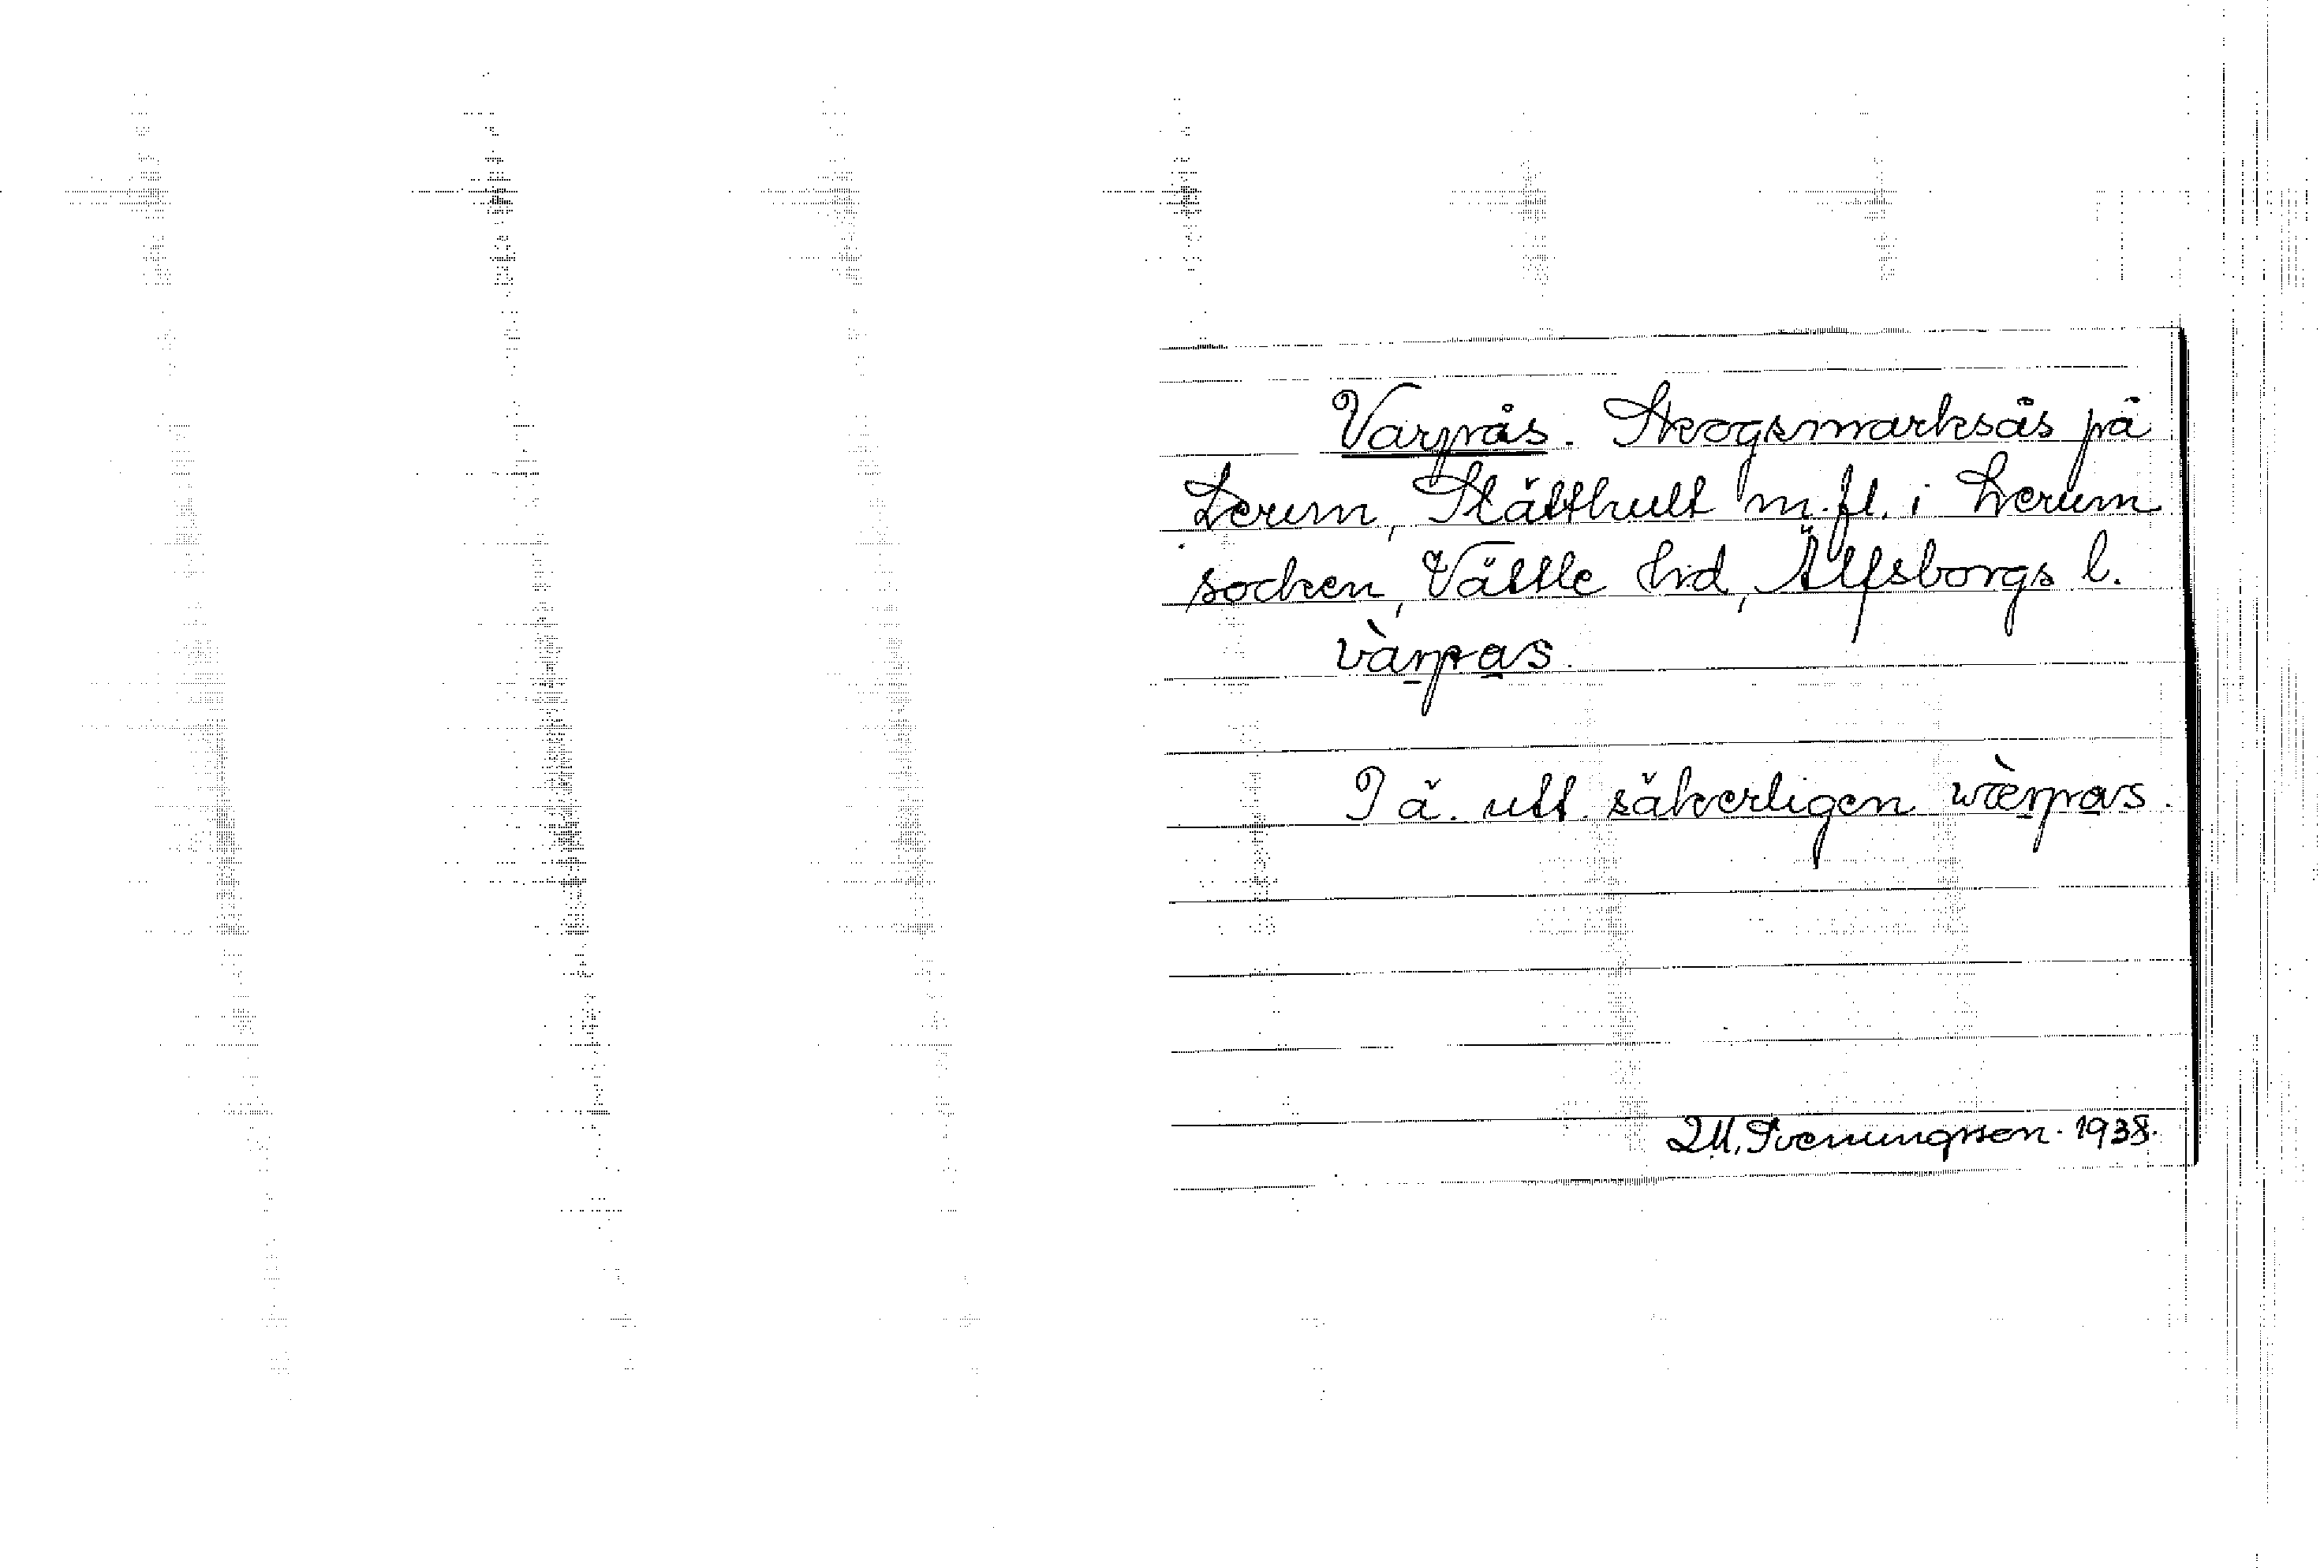 Varpås. Skogsmarksås på
Lerum, Slätthult m.fl. i Lerum
socken, Vättle hd, Älfsborgs l.
vàrpas.
I ä. utt. säkerligen wὰrpas.
D.M. Svenungsson. 1938.